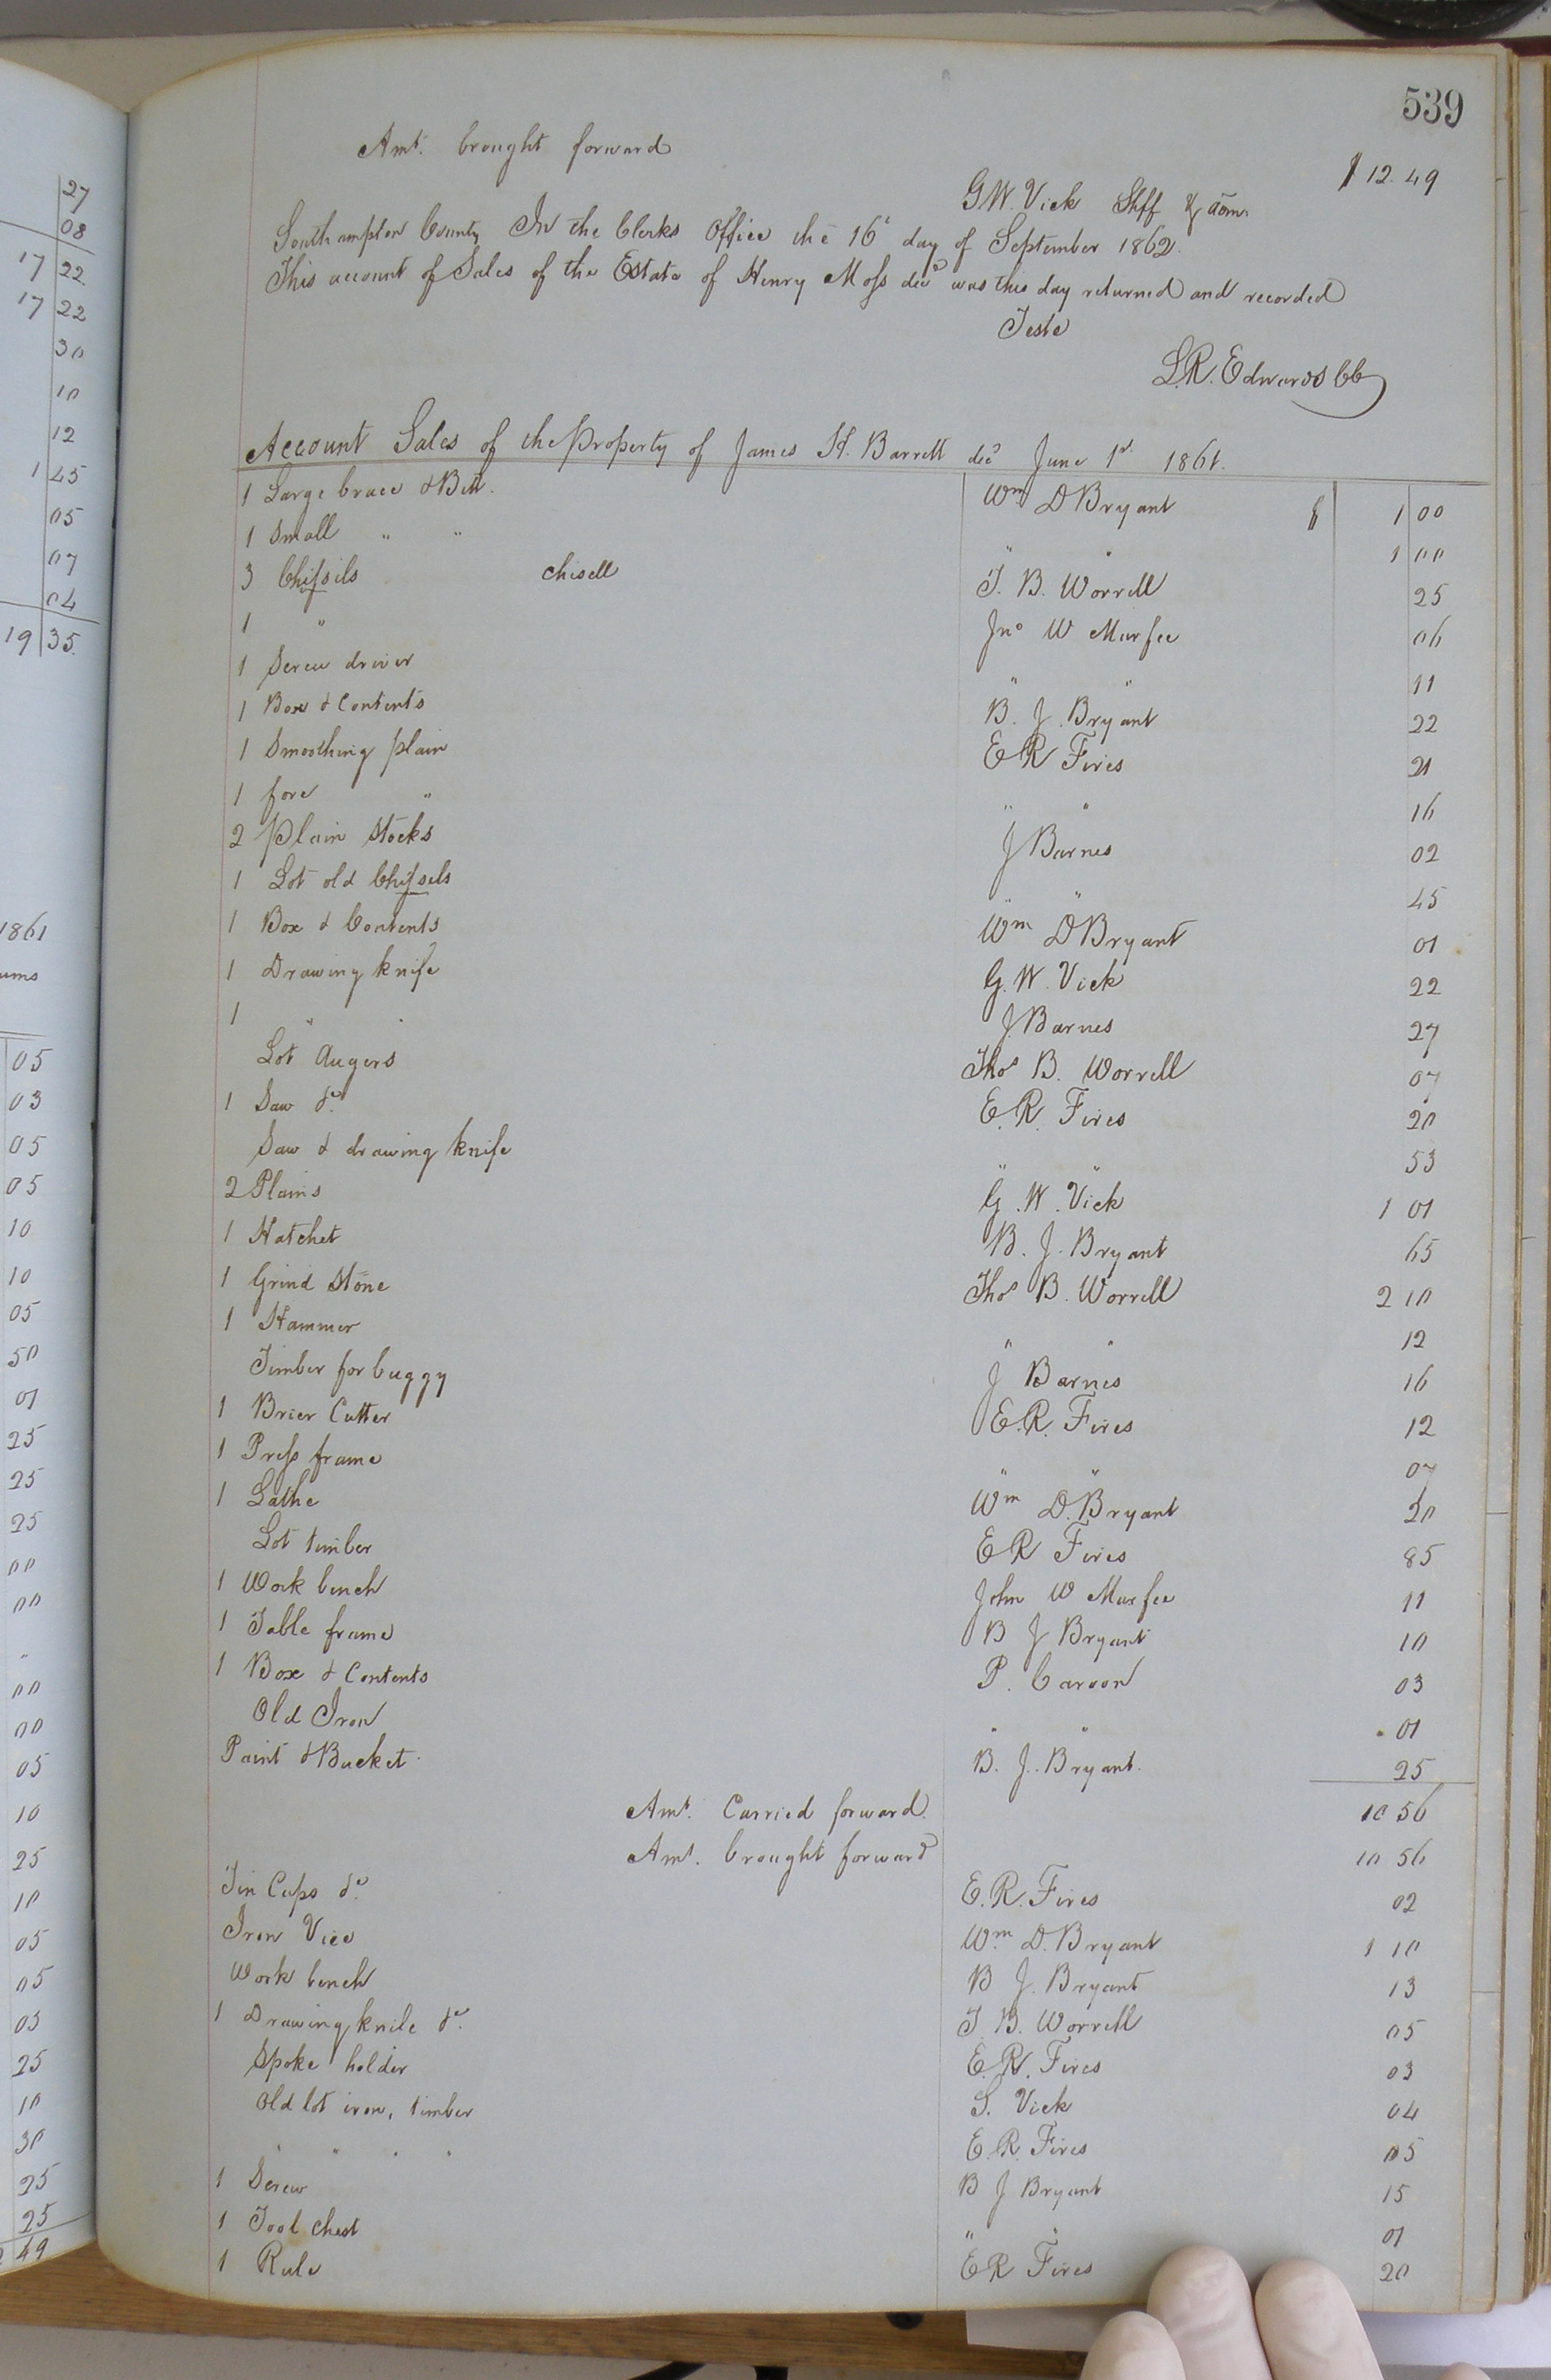 539
Amt. brought forward $ 12.49
G.W. Vick Shff & adm.
Southampton County In the Clerks Office the 16" day of September 1862.
This account of Sales of the Estate of Henry Moss decd was this day returned and recorded
Teste
L.R. Edwards CC
Account Sales of the Property of James H. Barrett decd June 1st 1861.
1 Large brace & Bitt. Wm D Bryant $ 1 00
1 Small " " " " 1 00
3 Chissils chisell T. B. Worrell 25
1 " Jno W Murfee 06
1 Screw driver " " 11
1 Box & Contents B. J. Bryant 22
1 Smoothing plain E R Fires 21
1 fore " " " 16
2 Plain stocks J Barnes 02
1 Lot old Chissels " " 45
1 Box & Contents Wm D Bryant 01
1 Drawing knife G. W. Vick 22
1 " " J. Barnes 27
Lot Augers Thos B. Worrell 07
1 Saw &c. E. R. Fires 20
Saw & drawing knife " " 53
2 Plains G. W. Vick 1 01
1 Hatchet B. J. Bryant 65
1 Grind Stone Thos B. Worrell 2 10
1 Hammer " " 12
Timber for buggy J Barnes 16
1 Brier Cutter E. R. Fires 12
1 Press frame " " 07
1 Lathe Wm D. Bryant 20
Lot timber E R Fires 85
1 Work bench John W Murfee 11
1 Table frame B J Bryant 10
1 Box & Contents P. 03
Old Iron " " 01
Paint & Bucket B. J. Bryant. 25
Amt. Carried forward. 10 56
Amt. brought forward 10 56
Tin Cups &c. E. R. Fires 02
Iron Vice Wm. D. Bryant 1 10
Work bench B J. Bryant 13
1 Drawing knife &c. T. B. Worrell 05
Spoke holder E. R. Fires 03
Old lot iron, timber S. Vick 04
" " " " E. R. Fires 05
1 Screw B J Bryant 15
1 Tool chest " " 01
1 Rule E R Fires 20
27
08
17 22
17 22
30
10
12
1 45
05
07
04
19 35.
1861
05
03
05
05
10
10
05
50
01
25
25
25
00
00
"
00
00
05
10
25
10
05
05
03
25
10
30
25
25
49